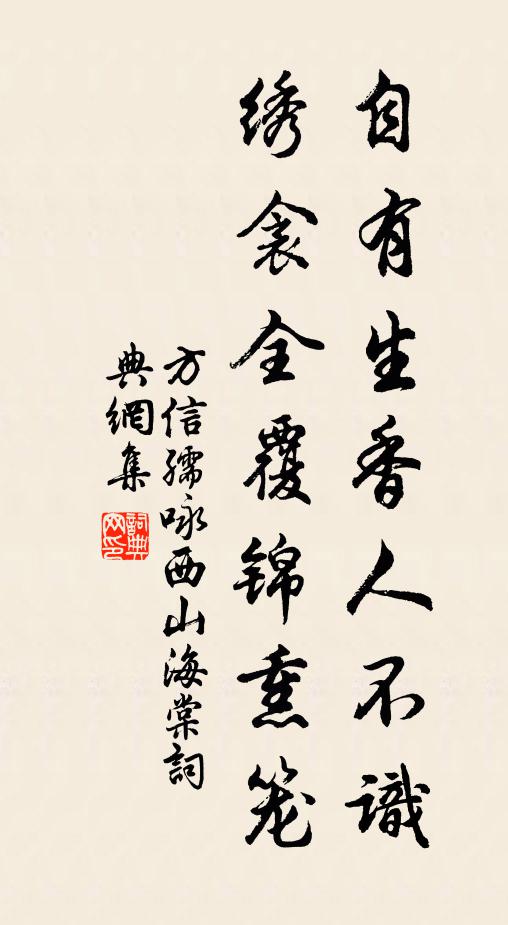 自有生香人不識
绣衾全覆锦熏笼
方信孺咏西山海棠詞
典網集
詞典網印